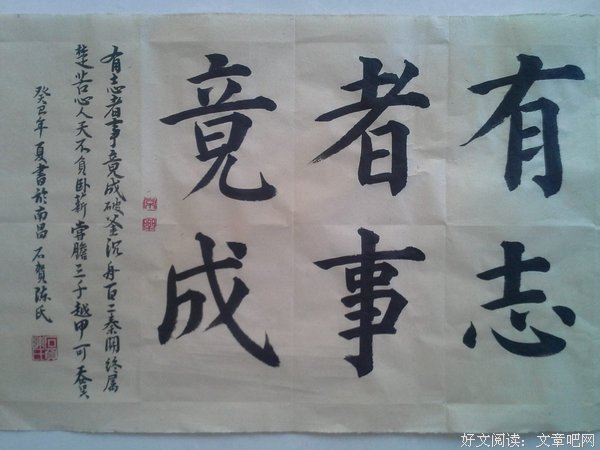 有志
者事
竟成
有志者事竟成破釜沉舟百二秦関终属
楚苦心人天不负卧薪尝膽三千越甲可吞吴
癸巳年夏書於南昌 石賀陈氏
好文阅读：文章吧网